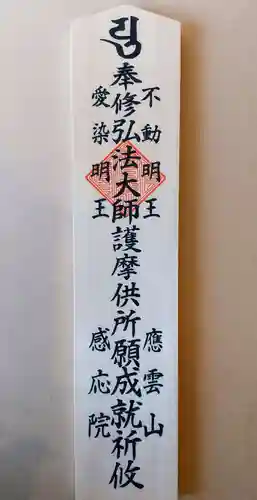 不動明王　應雲山
奉修弘法大師護摩供所願成就祈攸
愛染明王　感応院